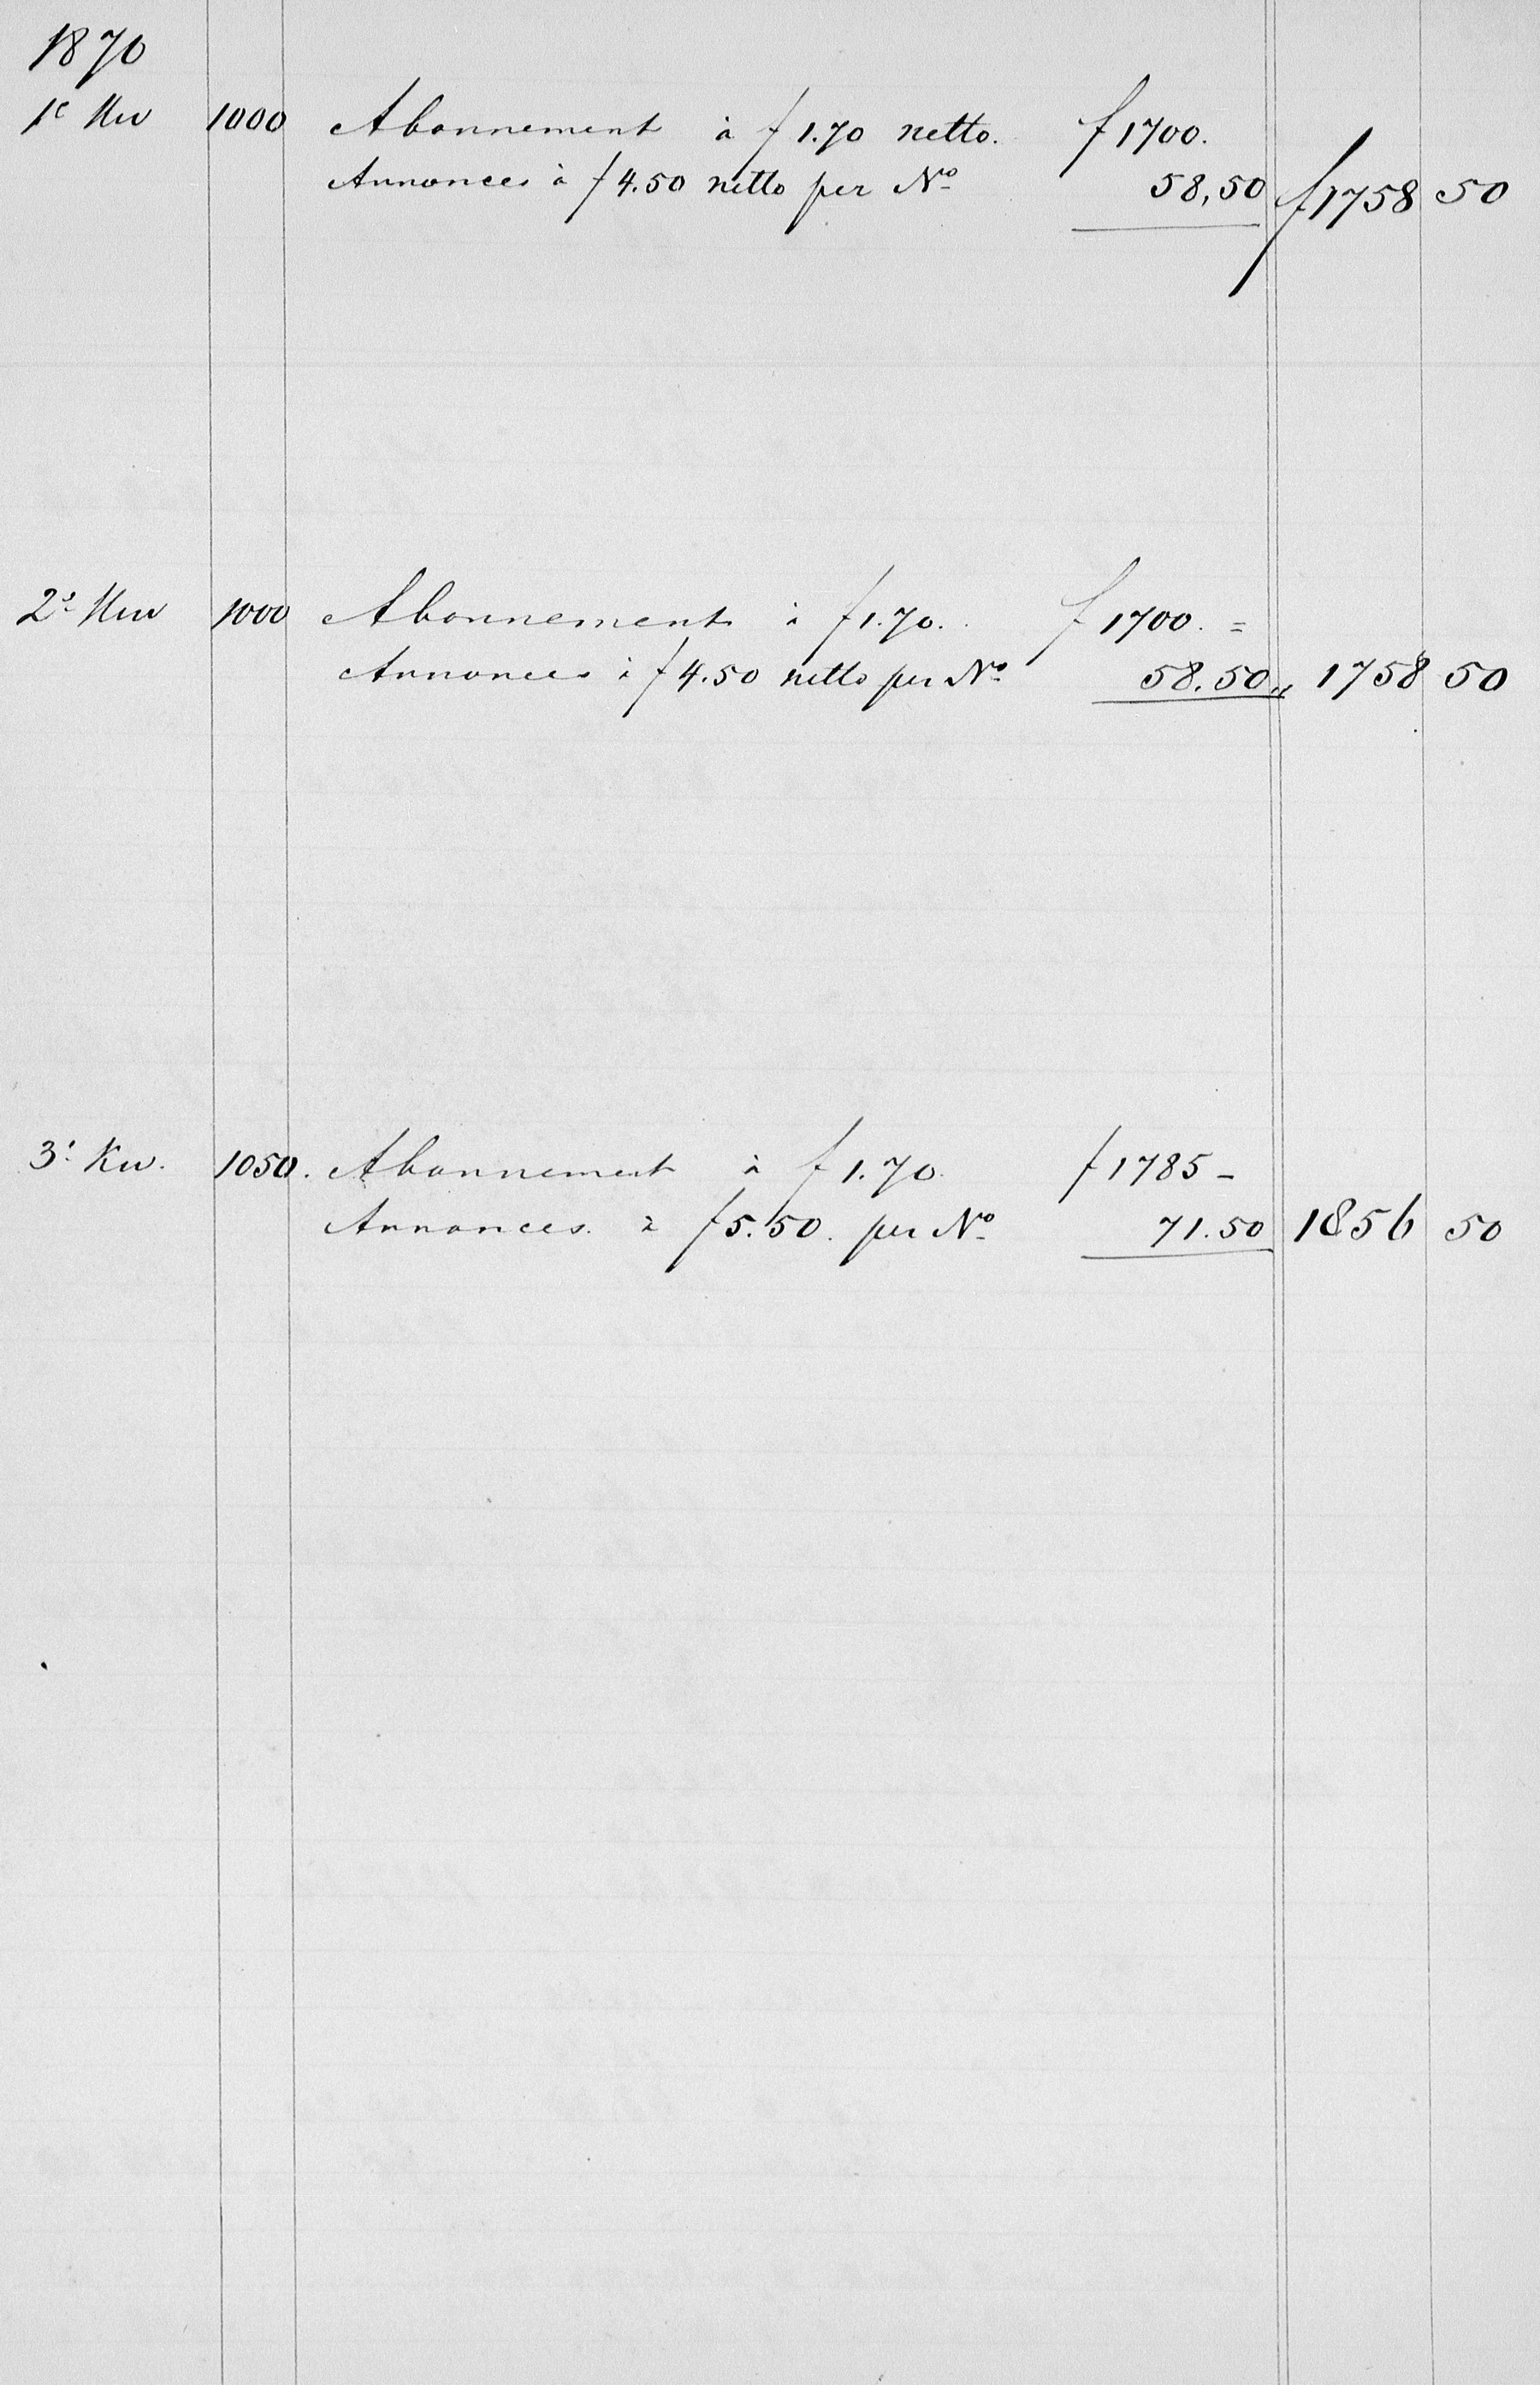 1870
1e Kw 1000 Abonnement à f 1.70 netto. f 1700.
Annonces à f 4.50 netto per No 58,50 f 1758 50
2e Kw 1000 Abonnement à f 1.70. f 1700. =
Annonces à f 4.50 netto per No 58.50 „ 1758 50
3e Kw. 1050. Abonnement à f 1.70. f 1785 -
Annonces à f 5.50. per No 71.50 1856 50